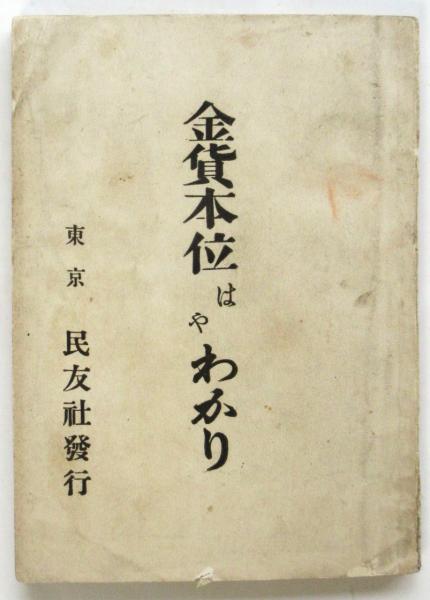 金貨本位はやわかり
東京 民友社發行